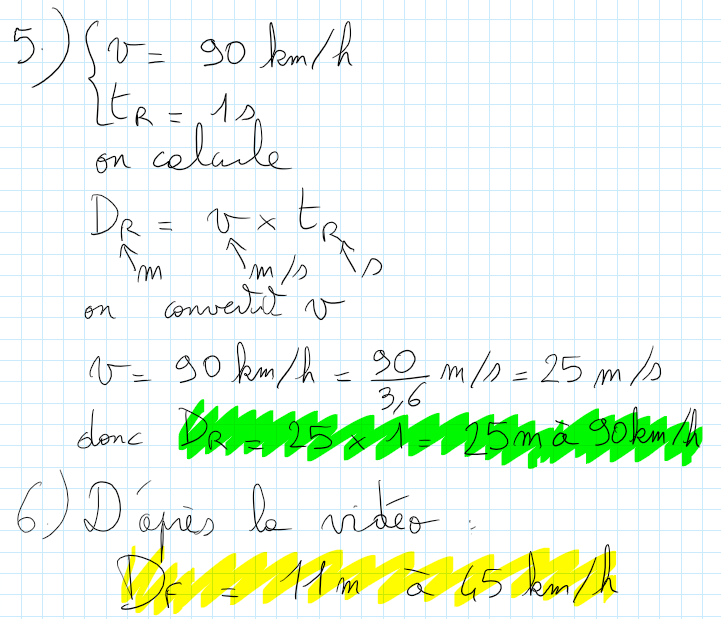 5.) { v = 90 km/h
t_R = 1 s
on calcule
D_R = v × t_R
m m/s s
on convertit v
v = 90 km/h = 90/3,6 m/s = 25 m/s
donc D_R = 25 × 1 = 25 m à 90 km/h
6.) D'après la vidéo :
D_F = 11 m à 45 km/h